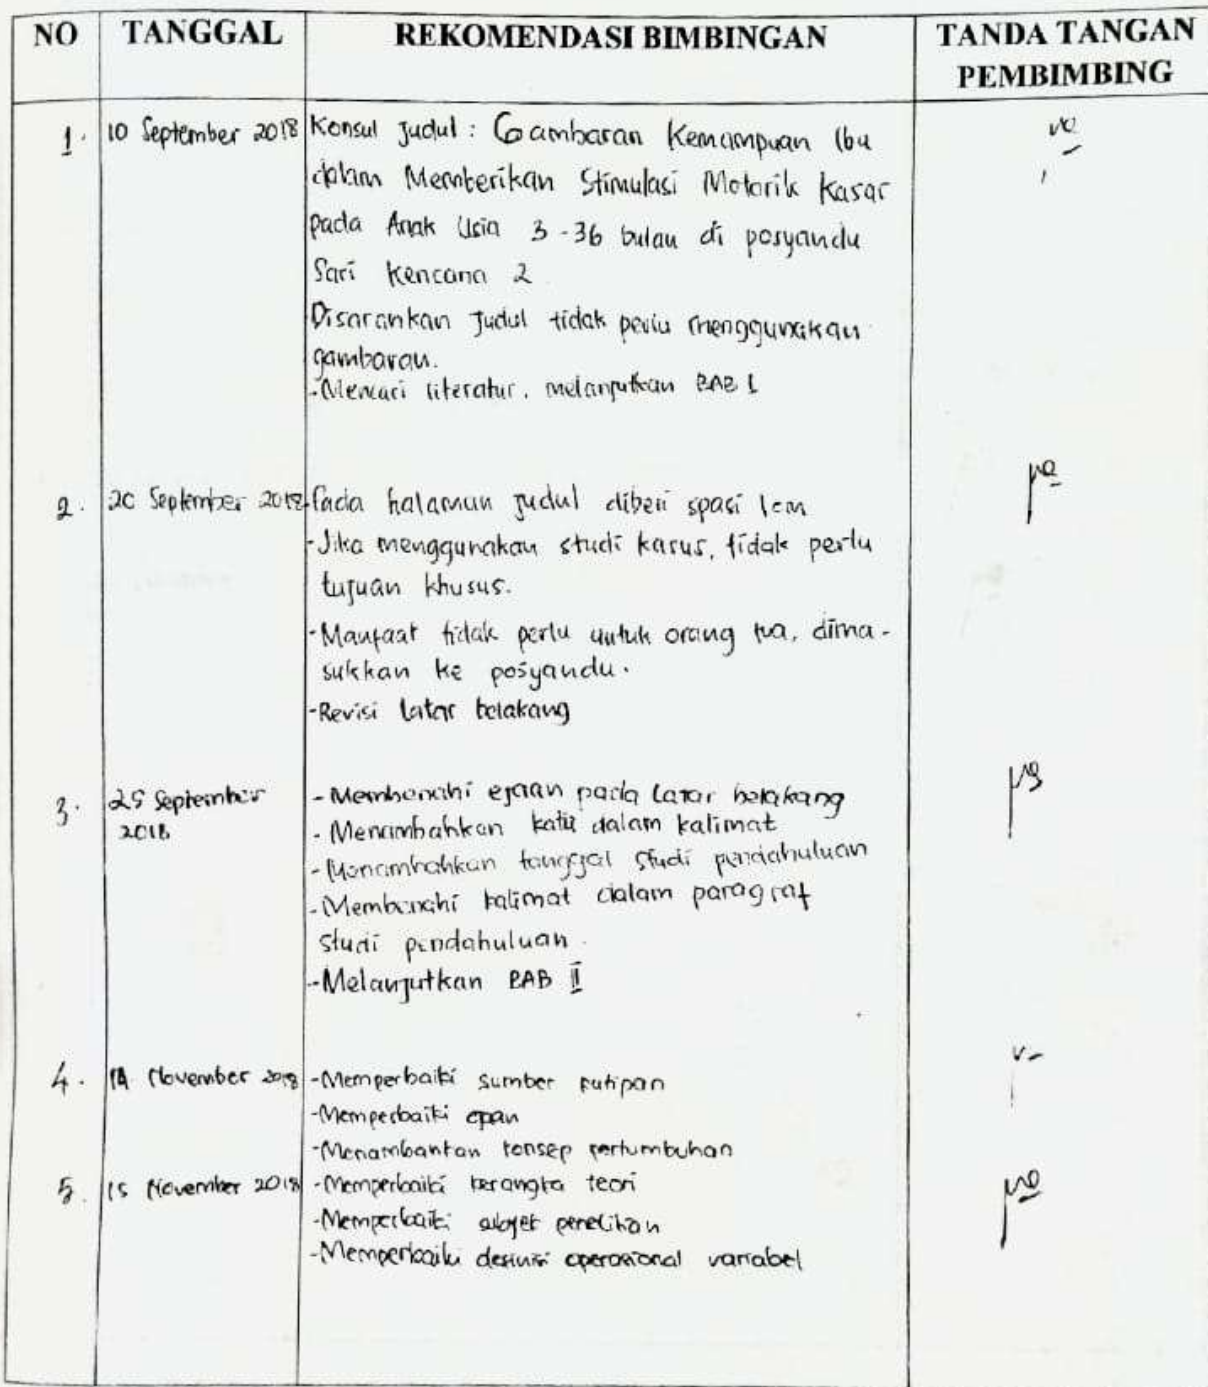 NO TANGGAL REKOMENDASI BIMBINGAN TANDA TANGAN
PEMBIMBING
1. 10 September 2018 Konsul Judul : Gambaran Kemampuan Ibu
dalam Memberikan Stimulasi Motorik Kasar
pada Anak Usia 3-36 bulan di posyandu
Sari Kencana 2
Disarankan Judul tidak perlu menggunakan
gambaran.
-Mencari literatur, melanjutkan BAB I
2. 20 September 2018 -Pada halaman judul diberi spasi 1cm
-Jika menggunakan studi kasus, tidak perlu
tujuan khusus.
-Manfaat tidak perlu untuk orang tua, dima-
sukkan ke posyandu.
-Revisi latar belakang
3. 25 September
2018
-Membenahi ejaan pada latar belakang
-Menambahkan kata dalam kalimat
-Menambahkan tanggal studi pendahuluan
-Membenahi kalimat dalam paragraf
studi pendahuluan.
-Melanjutkan BAB II
4. 14 November 2018 -Memperbaiki sumber kutipan
-Memperbaiki ejaan
-Menambahkan konsep pertumbuhan
5. 15 November 2018 -Memperbaiki kerangka teori
-Memperbaiki subjek penelitian
-Memperbaiki definisi operasional variabel